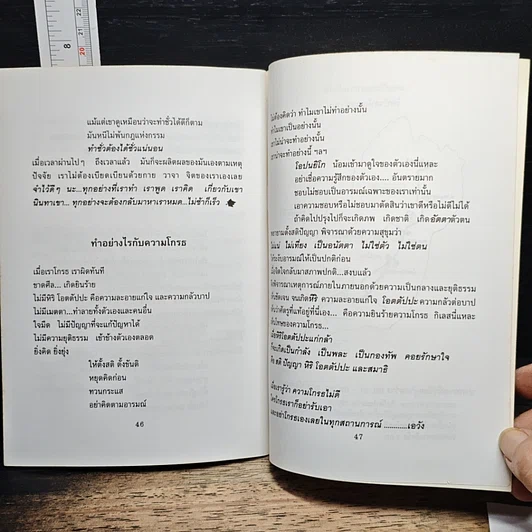 8
22
21
20
แม้แต่เขาดูเหมือนว่าจะทำชั่วได้ดีก็ตาม
มันหนีไม่พ้นกฎแห่งกรรม
ทำชั่วต้องได้ชั่วแน่นอน
เมื่อเวลาผ่านไปๆ ถึงเวลาแล้ว มันก็จะผลิตผลของมันเองตามเหตุ
ปัจจัย เราไม่ต้องเบียดเบียนด้วยกาย วาจา จิตของเราเองเลย
จำไว้ดีๆ นะ...ทุกอย่างที่เราทำ เราพูด เราคิด เกี่ยวกับเขา
นินทาเขา...ทุกอย่างจะต้องกลับมาหาเราหมด...ไม่ช้าก็เร็ว
ทำอย่างไรกับความโกรธ
เมื่อเราโกรธ เราผิดทันที
ขาดศีล... เกิดยินร้าย
ไม่มีหิริ โอตตัปปะ คือความละอายแก่ใจ และความกลัวบาป
ไม่มีเมตตา...ทำลายทั้งตัวเองและคนอื่น
ใจมืด ไม่มีปัญญาที่จะแก้ปัญหาได้
ไม่มีความยุติธรรม เข้าข้างตัวเองตลอด
ยิ่งคิด ยิ่งยุ่ง
ให้ตั้งสติ ตั้งขันติ
หยุดคิดก่อน
ทวนกระแส
อย่าคิดตามอารมณ์
46
ไม่ต้องคิดว่า ทำไมเขาไม่ทำอย่างนั้น
ทำไมเขาเป็นอย่างนั้น
เขาไม่น่าจะทำอย่างนั้น
เขาน่าจะทำอย่างนี้ ฯลฯ
โอปนยิโก น้อมเข้ามาดูใจของตัวเองนี่แหละ
อย่าเชื่อความรู้สึกของตัวเอง.... อันตรายมาก
ชอบไม่ชอบเป็นอารมณ์เฉพาะของเราเท่านั้น
เอาความชอบหรือไม่ชอบมาตัดสินว่าเขาดีหรือไม่ดีไม่ได้
ถ้าคิดไปปรุงไปก็จะเกิดภพ เกิดชาติ เกิดอัตตาตัวตน
พยายามตั้งสติปัญญา พิจารณาด้วยความสุขุมว่า
ไม่แน่ ไม่เที่ยง เป็นอนัตตา ไม่ใช่ตัว ไม่ใช่ตน
อารมณ์ให้เป็นปกติก่อน
เมื่อจิตใจกลับมาสภาพปกติ...สงบแล้ว
พิจารณาเหตุการณ์ภายในภายนอกด้วยความเป็นกลางและยุติธรรม
ชัดเจน จนเกิดหิริ ความละอายแก่ใจ โอตตัปปะ ความกลัวต่อบาป
ว่าศัตรูที่แท้อยู่ที่นี่เอง... คือความยินร้ายความโกรธ กิเลสนี่แหละ
โทษของความโกรธ...
เมื่อหิริโอตตัปปะแก่กล้า
ก็จะเกิดเป็นกำลัง เป็นพละ เป็นกองทัพ คอยรักษาใจ
คือ สติ ปัญญา หิริ โอตตัปปะ และสมาธิ
เมื่อเรารู้ว่า ความโกรธไม่ดี
ใครโกรธเราก็อย่ารับเอา
และอย่าโกรธเองเลยในทุกสถานการณ์ ............เอวัง
47